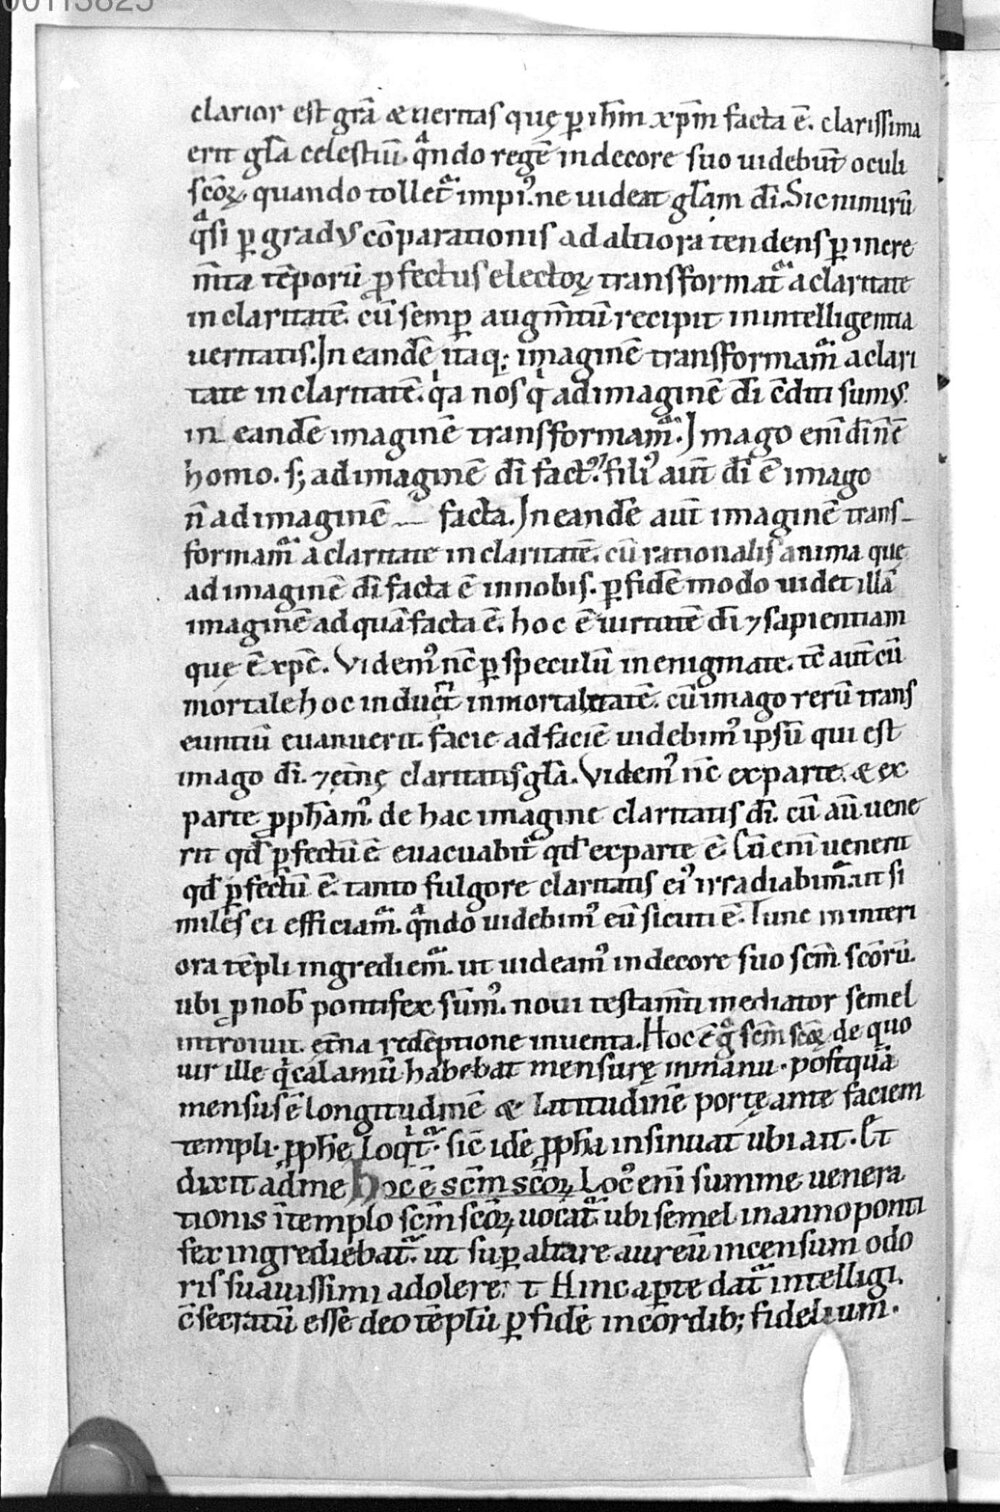 00113825
clarior est gr̄a & ueritas quę ꝑ ih̄m xp̄m facta ē. clarissima
erit gl̄a celestiū. qͣndo regē in decore suo uidebūt oculi
sc̄oꝝ. quando tolletᷓ impiꝰ. ne uideat gl̄am dī. Sic nimirū
qͣsi ꝑ gradꝰ cōparationis ad altiora tendens ꝑ incre
m̄ta tēporū ꝓfectus electoꝝ transformatᷓ a claritate
in claritatē. cū semꝑ augm̄tū recipit in intelligentia
ueritatis. In eandē itaq; imaginē transformamᷓ a clari
tate in claritatē. qͥa nos qͥ ad imaginē dī cōditi sumꝰ.
in eandē imaginē transformamᷓ. Imago eni dī n̄ ē
homo. s; ad imaginē dī factꝰ. filiꝰ aūt dī ē imago
n̄ ad imaginē facta. In eandē aūt imaginē trans-
formamᷓ a claritate in claritatē. cū rationalis anima quę
ad imaginē dī facta ē in nobis. ꝑ fidē modo uidet illā
imaginē ad quā facta ē. hoc ē uirtutē dī ⁊ sapientiam
quę ē xp̄c. Videmꝰ nc̄ ꝑ speculū in enigmate. tc̄ aūt cū
mortale hoc induet inmortalitatē. cū imago rerū trans
euntiū euanuerit. facie ad faciē uidebimꝰ ipsū qui est
imago dī. ⁊ et̄nę claritatis gl̄a. Videmꝰ nc̄ ex parte. & ex
parte ꝓph̄amꝰ de hac imagine claritatis dī. cū aūt uene
rit qd̄ ꝑfectū ē euacuabitᷓ qd̄ ex parte ē. Cū eni uenerit
qd̄ ꝑfectū ē. tanto fulgore claritatis eiꝰ irradiabimᷓ. ut si
miles ei efficiamᷓ. qͣndo uidebimꝰ eū sicuti ē. Tunc in interi
ora tēpli ingrediemᷓ. ut uideamꝰ in decore suo sc̄m sc̄orū.
ubi ꝓ nob̄ pontifex sūmꝰ. noui testam̄ti mediator semel
introiuit. et̄na redēptione inuenta. Hoc ē gͦ sc̄m sc̄oꝝ de quo
uir ille qͥ calamū habebat mensurę in manu. postquā
mensus ē longitudinē & latitudinē portę ante faciem
templi. ꝓph̄ę loqͥtᷓ. sic̄ idē ꝓph̄a insinuat ubi ait. Et
dixit ad me Hoc ē sc̄m sc̄oꝝ. Locꝰ eni summe uenera
tionis ī templo sc̄m sc̄oꝝ uocatᷓ. ubi semel in anno ponti
fex ingrediebatᷓ. ut suꝑ altare aureū incensum odo
ris suauissimi adoleret. Hinc aꝑte datᷓ intelligi.
c̄secratū esse deo tēplū ꝑ fidē in cordib; fidelium.